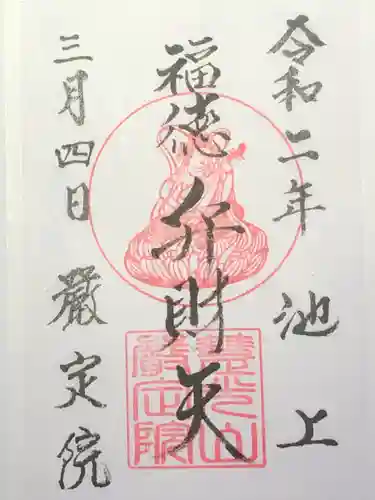 令和二年 池上
福徳 弁財天
三月四日 厳定院
慧光山
嚴定院